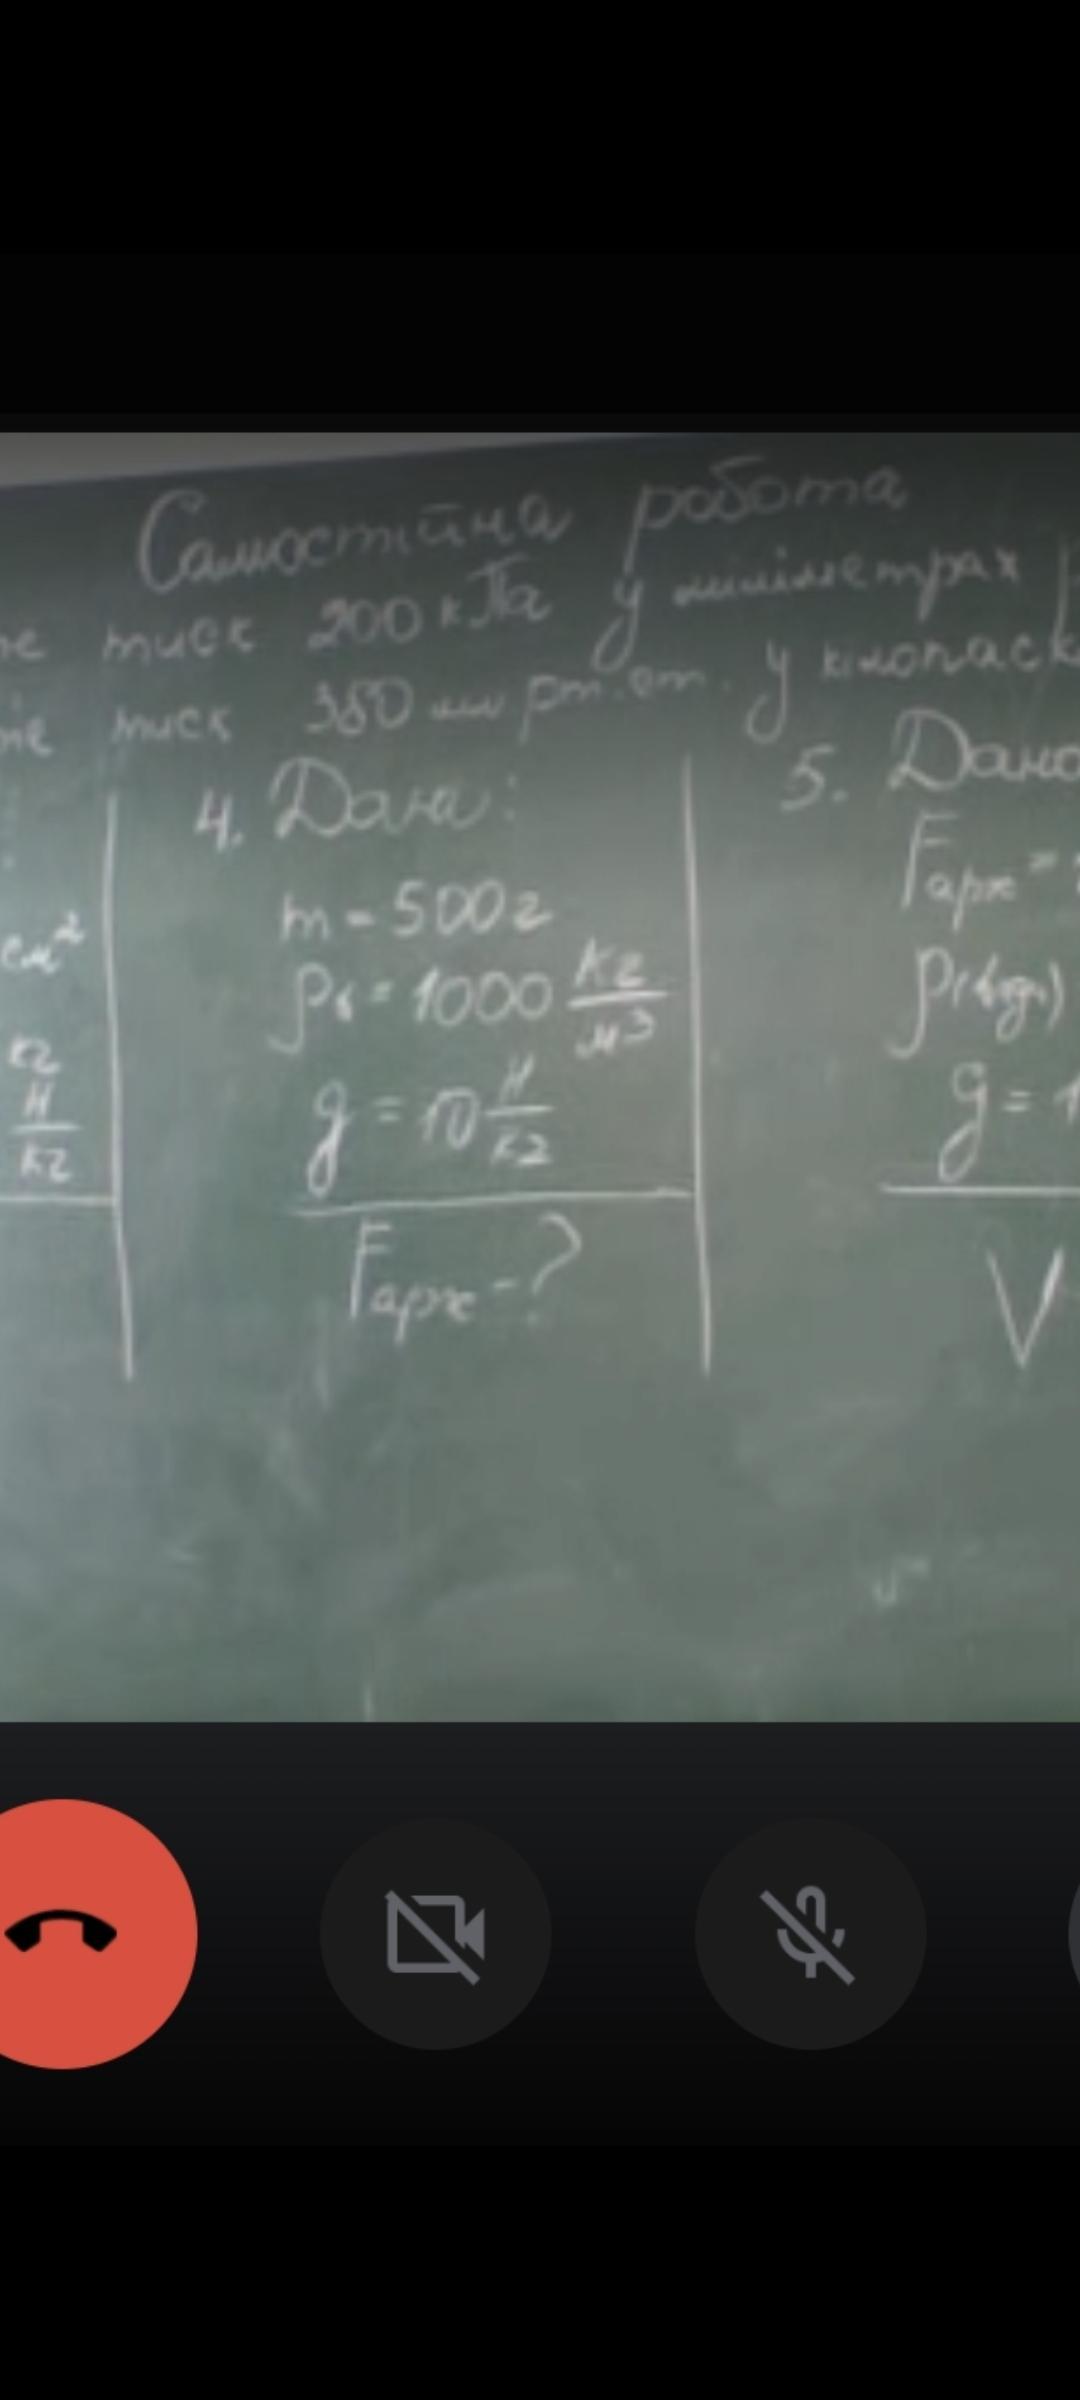 Самостійна робота
тиск 200 кПа у міліметрах
тиск 380 мм рт. ст. у кілопаск
4. Дано:
m = 500 г
ρв = 1000 кг/м³
g = 10 Н/кг
Fарх - ?
5. Дано
Fарх =
g = 1
V
см²
кг
Н/кг